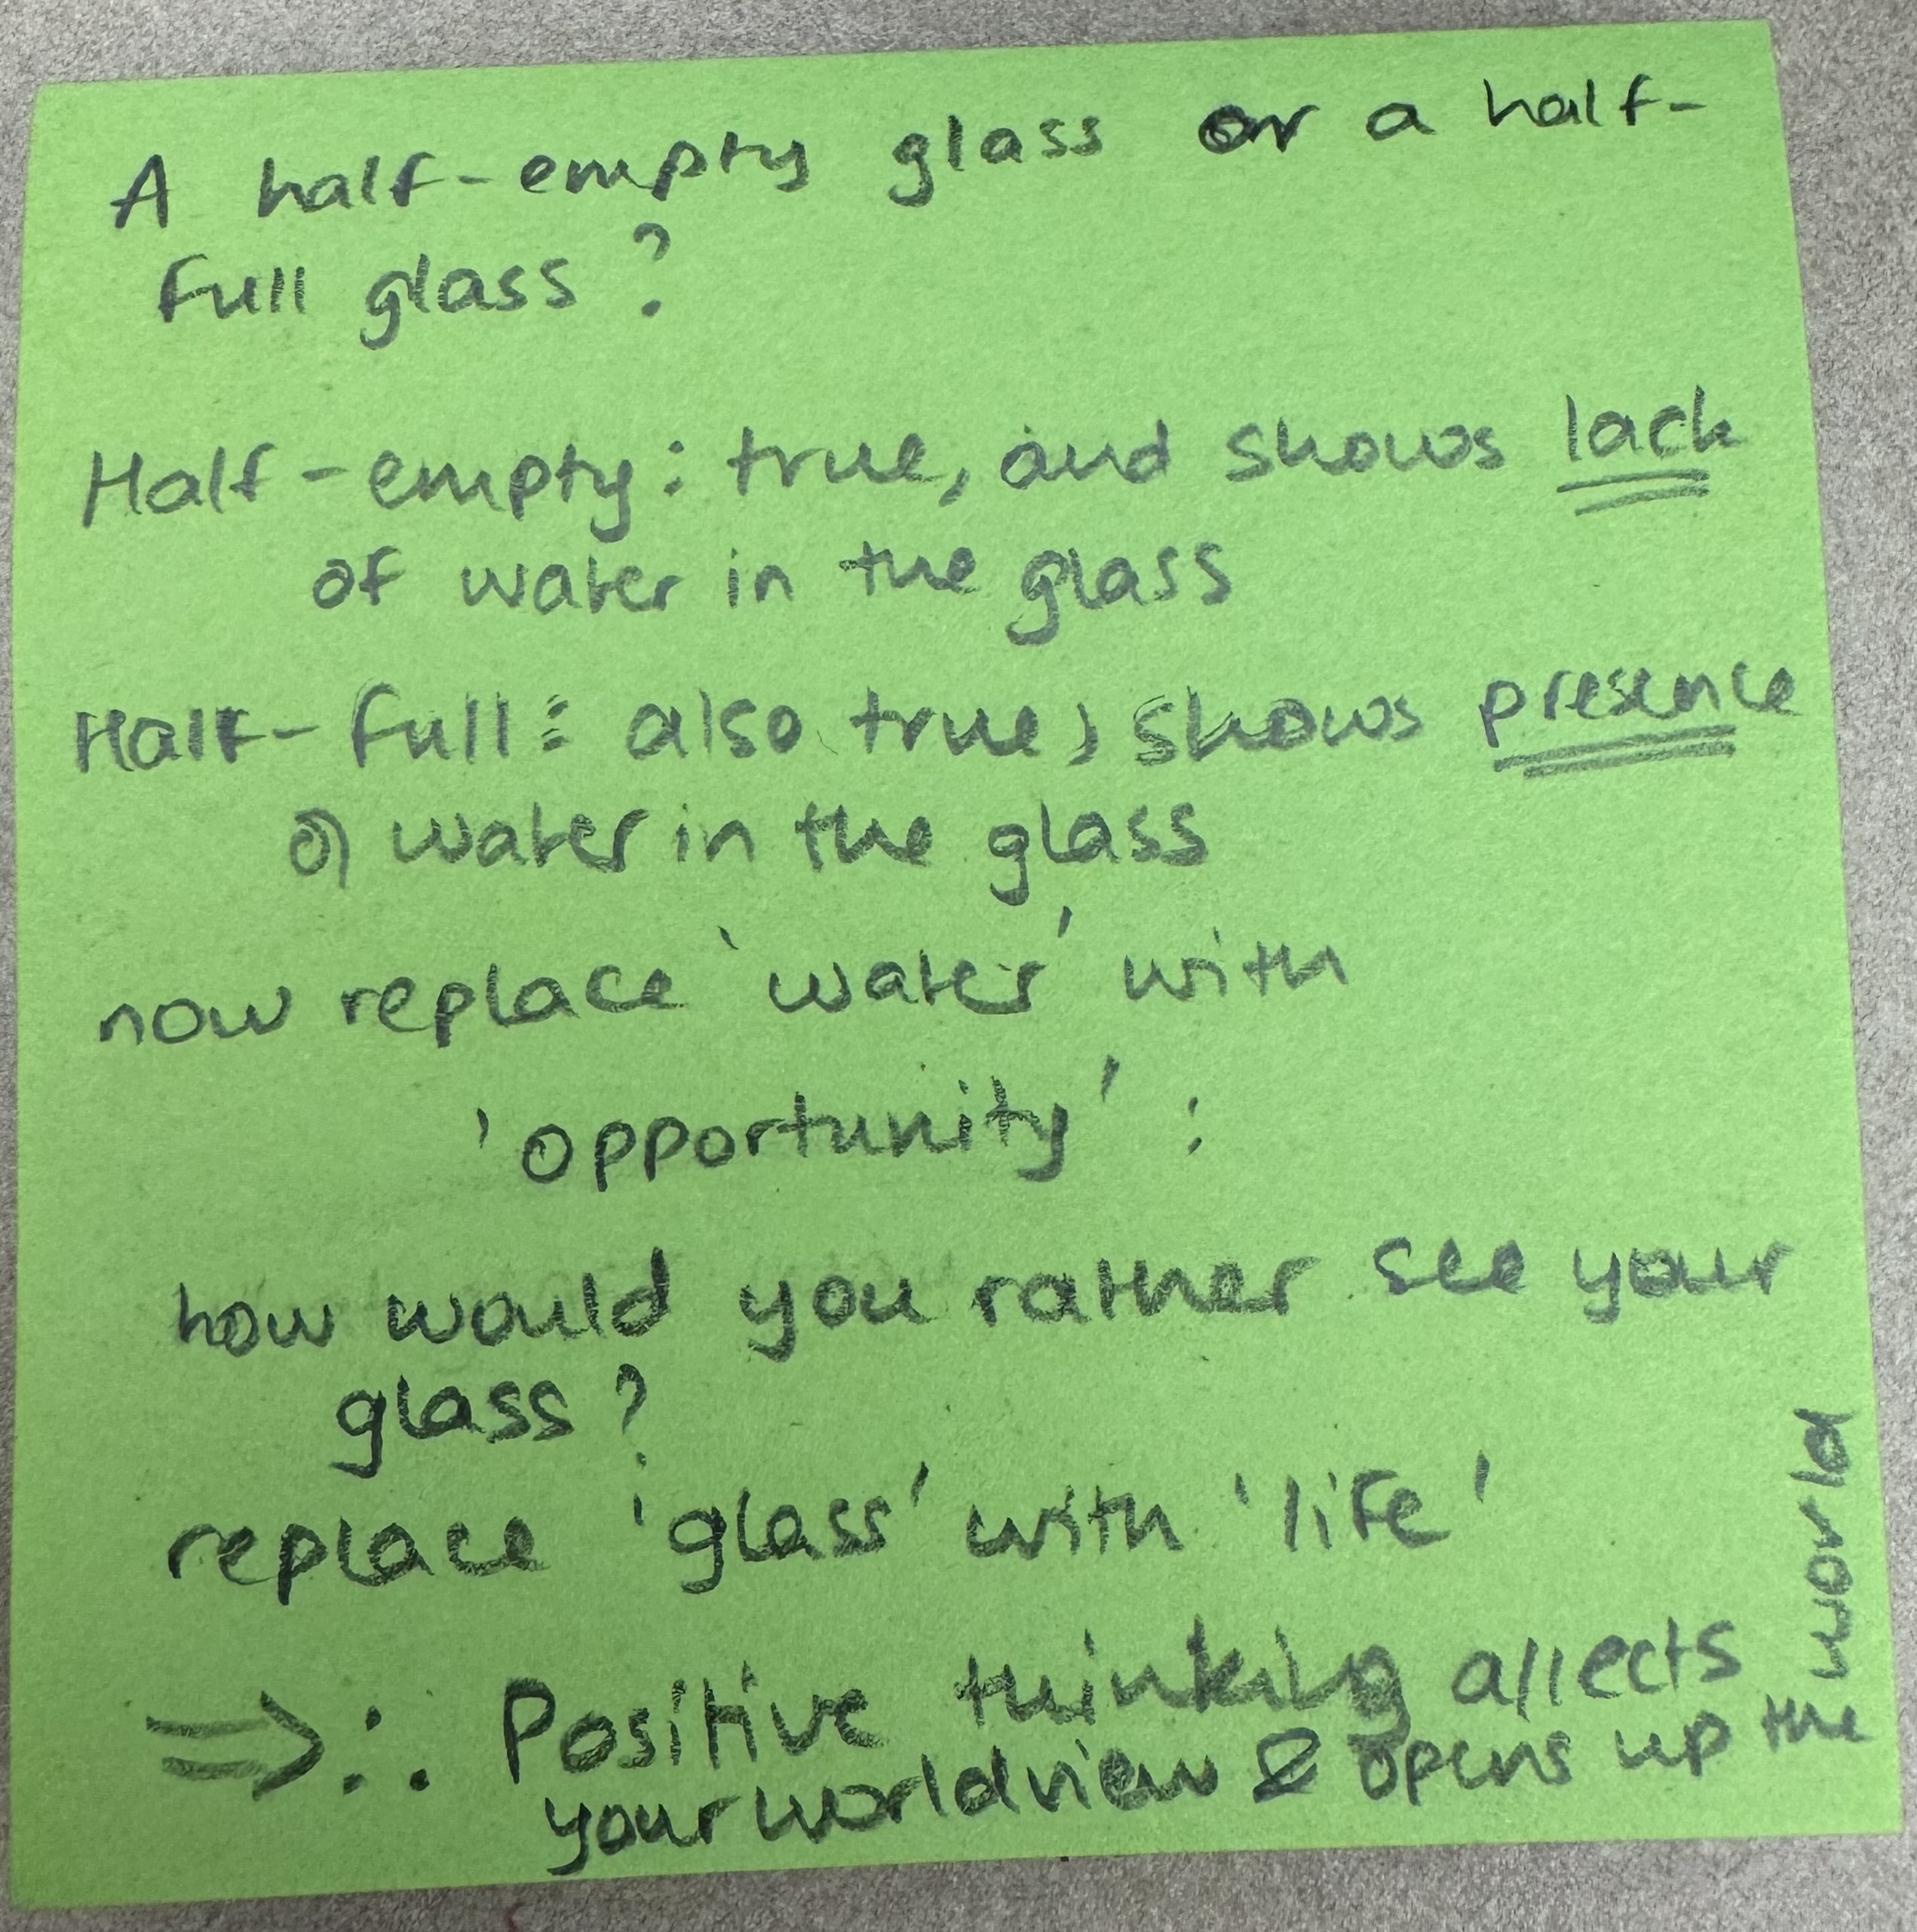 A half-empty glass or a half-
full glass?
Half-empty: true, and shows lack
of water in the glass
Half-full: also true, shows presence
of water in the glass
now replace 'water' with
'opportunity':
how would you rather see your
glass?
replace 'glass' with 'life'
⇒ ∴ Positive thinking affects
your worldview & opens up the
world